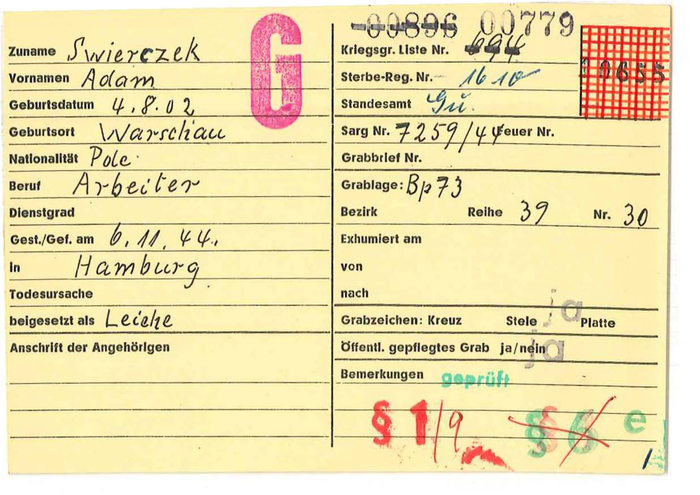 Zuname Swierczek
Vornamen Adam
Geburtsdatum 4.8.02
Geburtsort Warschau
Nationalität Pole
Beruf Arbeiter
Dienstgrad
Gest./Gef. am 6.11.44.
in Hamburg
Todesursache
beigesetzt als Leiche
Anschrift der Angehörigen
G
00896 00779
Kriegsgr. Liste Nr. 694
Sterbe-Reg. Nr. 1610
Standesamt Gu.
10655
Sarg Nr. 7259/44 Feuer Nr.
Grabbrief Nr.
Grablage: Bp73
Bezirk Reihe 39 Nr. 30
Exhumiert am
von
nach
ja
Grabzeichen: Kreuz Stele Platte
Öffentl. gepflegtes Grab ja/nein
ja
Bemerkungen geprüft
§ 1/9 § 6 e